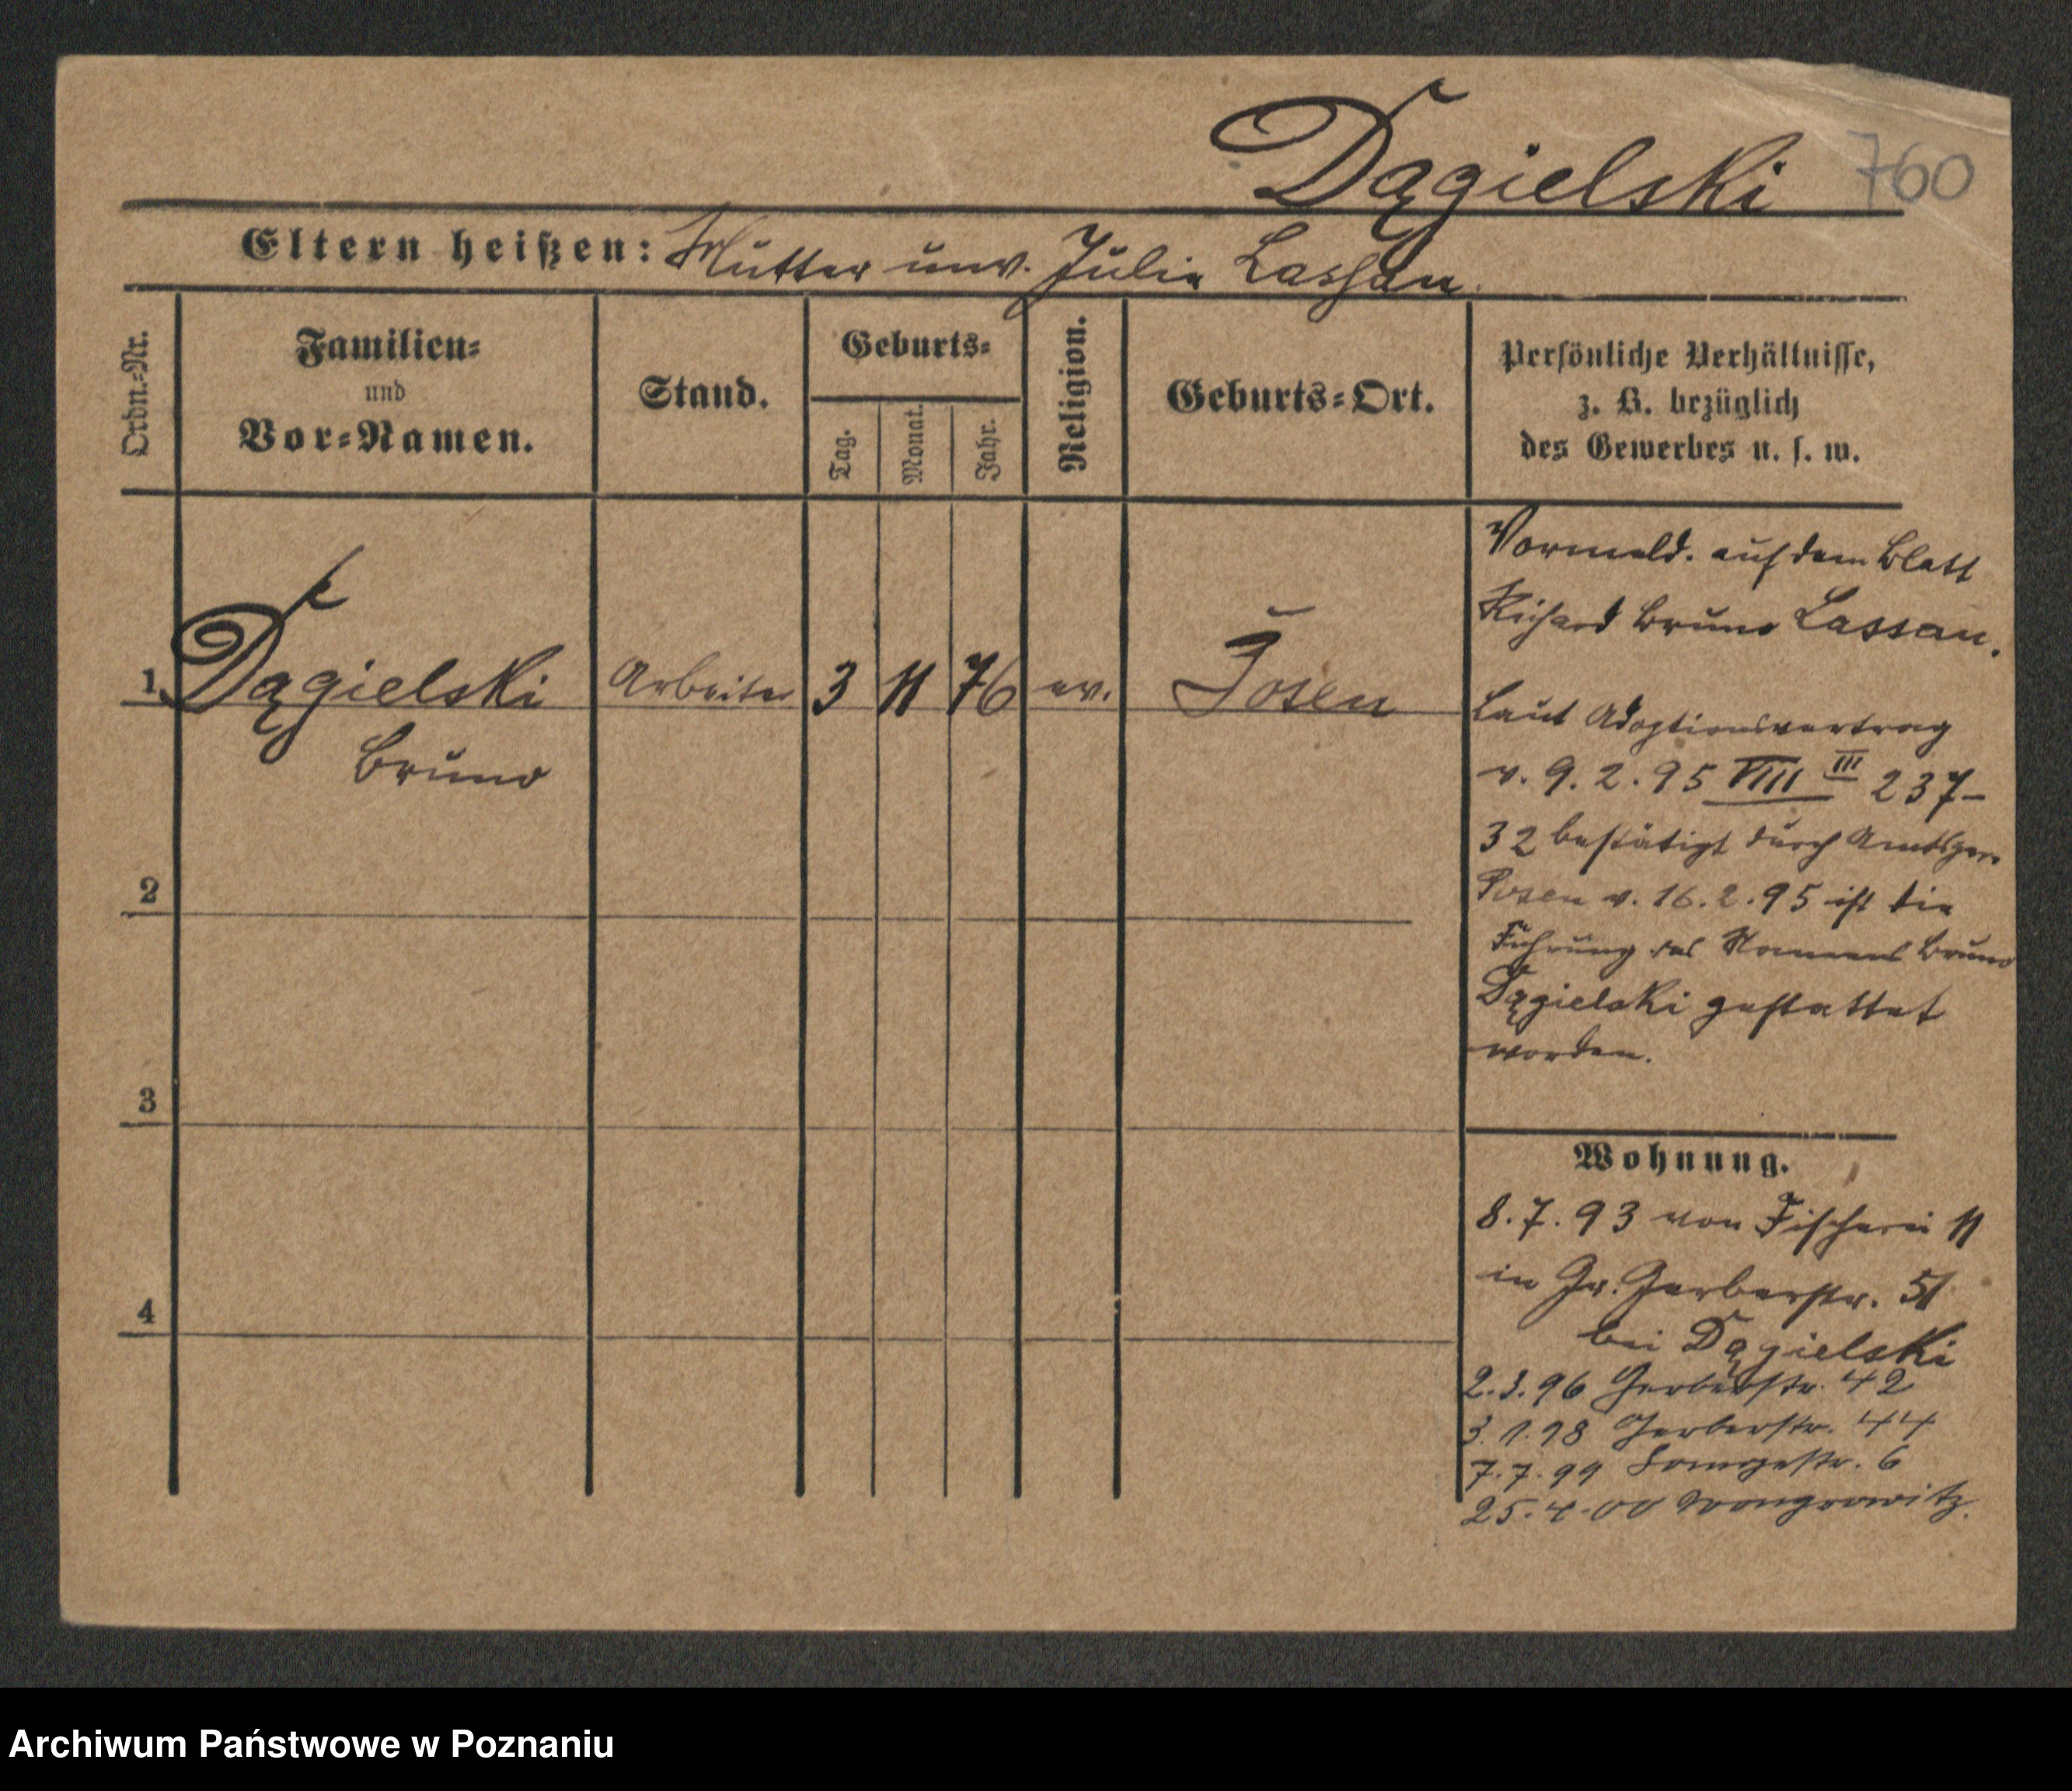 Dągielski 760
Eltern heißen: Mutter unv. Julie Lassan.
Ordn.-Nr.
Familien-
und
Vor-Namen.
Stand.
Geburts-
Tag.
Monat.
Jahr.
Religion.
Geburts-Ort.
Persönliche Verhältnisse,
z. B. bezüglich
des Gewerbes u. s. w.
1 Dągielski Arbeiter 3 11 76 ev. Posen
Bruno
2
3
4
Vormeld. auf dem Blatt
Richard Bruno Lassan.
Laut Adoptionsvertrag
v. 9. 2. 95 VIII III 237-
32 bestätigt durch Amtsger.
Posen v. 16. 2. 95 ist die
Führung des Namens Bruno
Dągielski gestattet
worden.
Wohnung.
8. 7. 93 von Fischerei 11
in Gr. Gerberstr. 51
bei Dągielski
2. 3. 96 Gerberstr. 42
3. 1. 98 Gerberstr. 44
7. 7. 99 Langestr. 6
25. 4. 00 Wongrowitz.
Archiwum Państwowe w Poznaniu